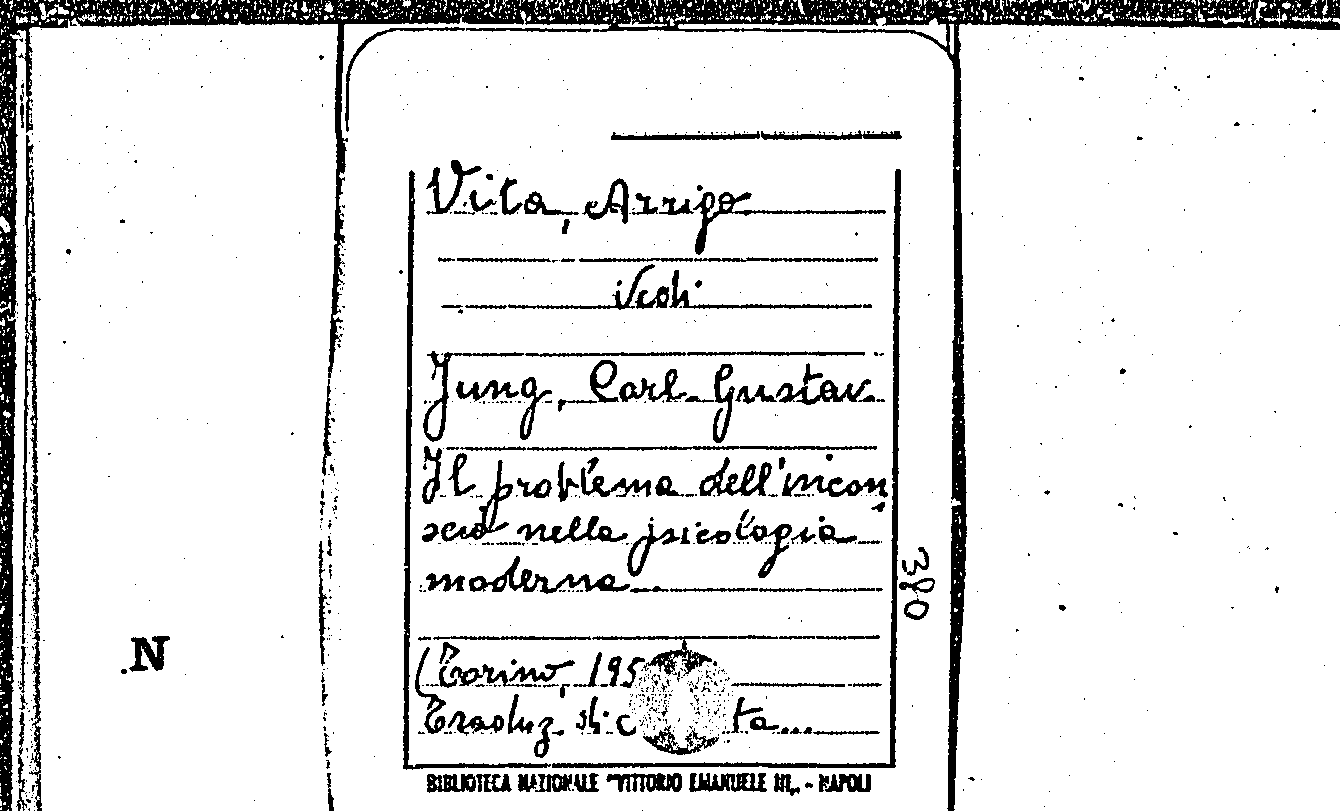 Vita, Arrigo
vedi
Jung, Carl Gustav.
Il problema dell'incon
scio nella psicologia
moderna...
380
N
(Torino, 195
Traduz. di ta...
BIBLIOTECA NAZIONALE "VITTORIO EMANUELE III„ - NAPOLI